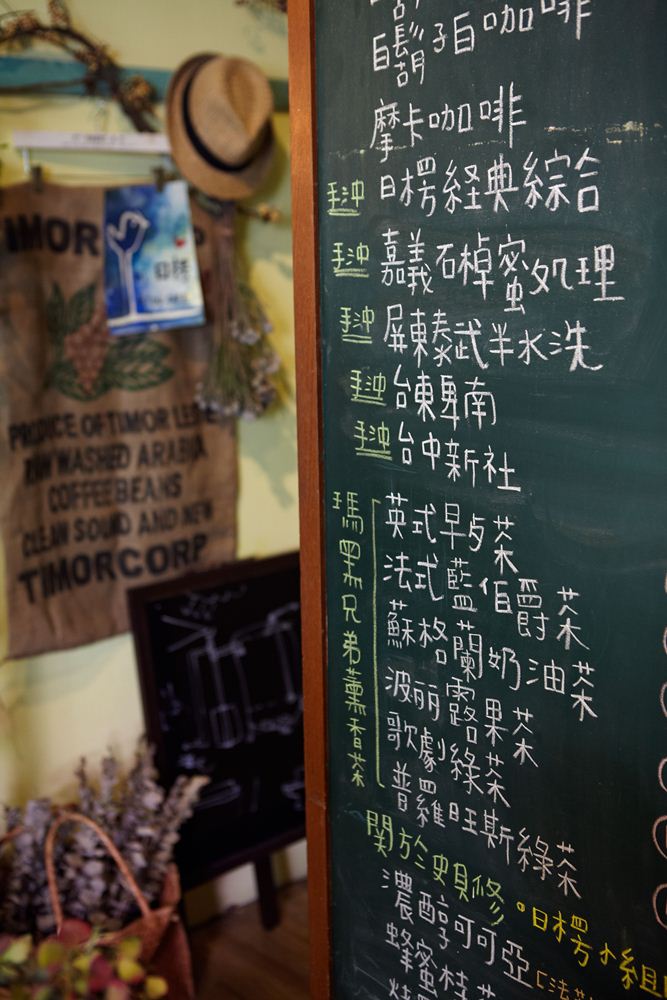 白鬍子白咖啡
摩卡咖啡
手沖 日楞経典綜合
手沖 嘉義石棹蜜処理
手沖 屏東泰武半水洗
手沖 台東卑南
手沖 台中新社
瑪黑兄弟薰香茶
英式早与茶
法式藍伯爵茶
蘇格蘭奶油茶
波丽露果茶
歌劇綠茶
普羅旺斯綠茶
關於
日楞小組
濃醇可可亞
蜂蜜
PRODUCE OF TIMOR LESTE
RAW WASHED ARABIA
COFFEE BEANS
CLEAN SOUND AND NEW
TIMORCORP